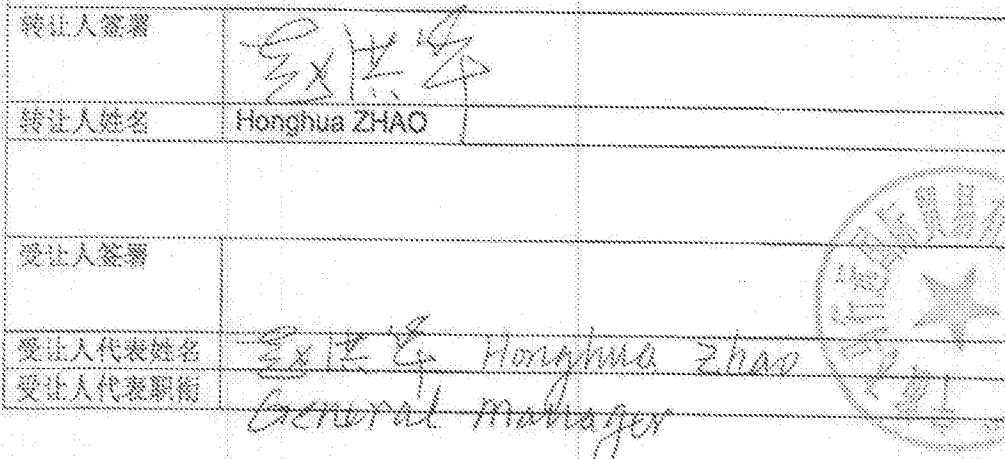 转让人签署
赵洪华
转让人姓名 Honghua ZHAO
受让人签署
受让人代表姓名 赵洪华 Honghua Zhao
受让人代表职衔 General Manager
国际贸易